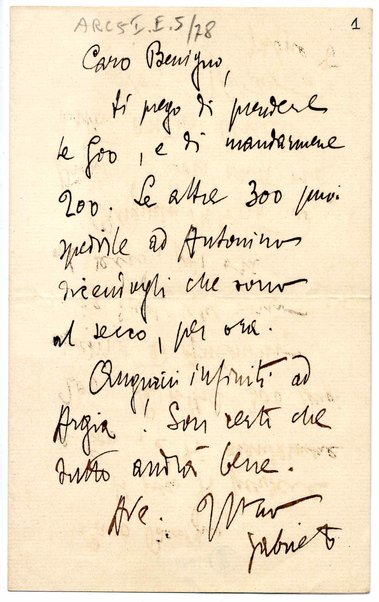 ARC 5 I. E. 5/78
1
Caro Benigno,
ti prego di prendere
le 500, e di mandarmene
200. Le altre 300 puoi
spedirle ad Antonino
dicendogli che sono
al secco, per ora.
Auguri infiniti ad
Argia! Son certo che
tutto andrà bene.
Ave.
Gabriele